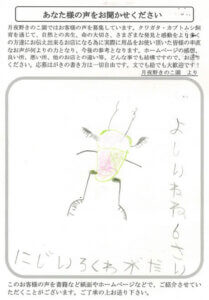 あなた様の声をお聞かせください
月夜野きのこ園ではお客様の声を募集しています。クワガタ・カブトムシ飼
育を通じて、自然との共生、命の大切さ、さまざまな発見と感動をより多く
の方達にお伝え出来るお店になる為に実際に用品をお使い頂いた皆様の率直
なお声が何よりの力となり、今後の参考となります。ホームページの感想、
良い所、悪い所、他のお店との違い等、どんな事でも結構ですので、お送り
ください。応募はがきの書き方は一切自由です。文でも絵でも大歓迎です！
月夜野きのこ園 より
よしい ねね 6さい
にじいろくわがた
このお客様の声を書籍など紙面やホームページなどで、ご紹介させていた
だくことがございます。ご了承の上お送り下さい。